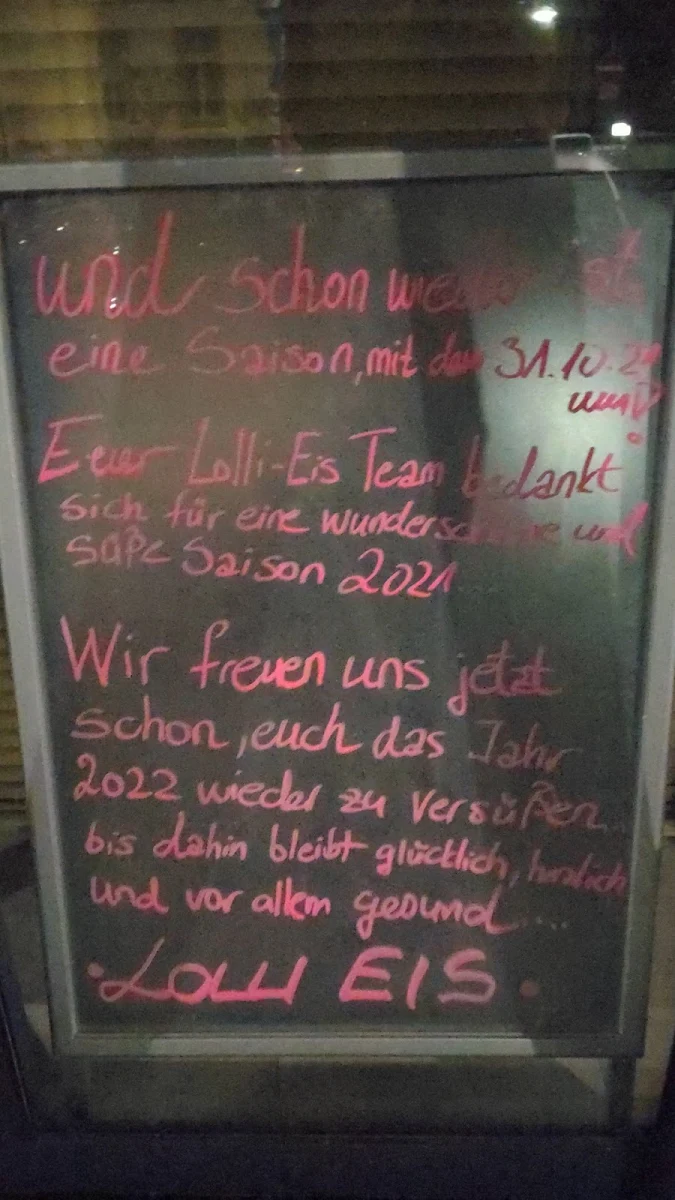 und schon wieder ist
eine Saison, mit dem 31.10.21
um!
Euer Lolli-Eis Team bedankt
sich für eine wunderschöne und
süße Saison 2021...
Wir freuen uns jetzt
schon, euch das Jahr
2022 wieder zu versüßen...
bis dahin bleibt glücklich, herzlich
und vor allem gesund....
·LOLLI EIS·